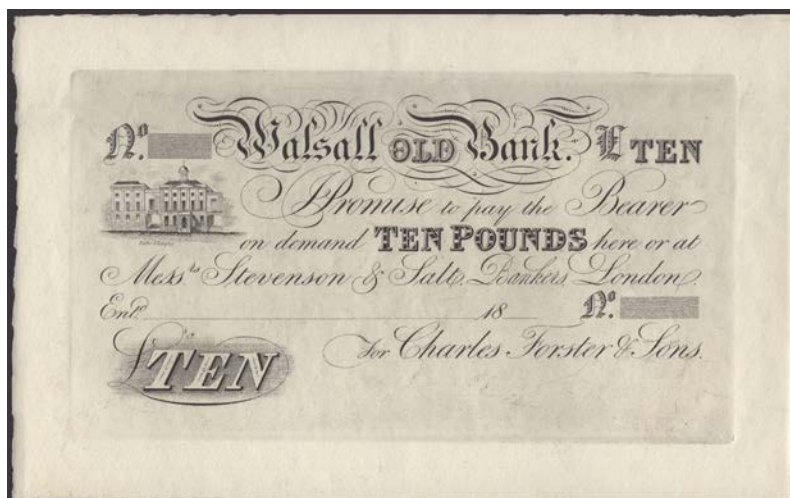 No. Walsall OLD Bank. £ TEN
I Promise to pay the Bearer
on demand TEN POUNDS here or at
Messrs Stevenson & Salt, Bankers, London.
Entd. 18 No.
£ TEN
For Charles Forster & Sons.